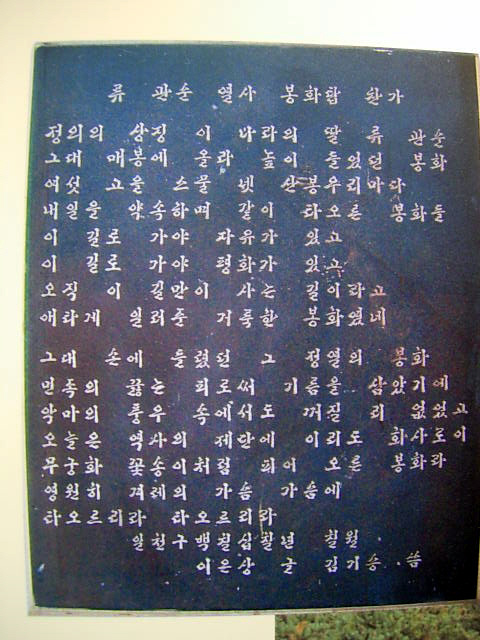 류관순 열사 봉화탑 찬가
정의의 상징 이 나라의 딸 류관순
그대 매봉에 올라 높이 들었던 봉화
여섯 고을 스물 넷 산봉우리마다
내일을 약속하며 같이 타오른 봉화들
이 길로 가야 자유가 있고
이 길로 가야 평화가 있고
오직 이 길만이 사는 길이라고
애타게 일러준 거룩한 봉화였네
그대 손에 들렸던 그 정열의 봉화
민족의 끓는 피로써 기름을 삼았기에
악마의 풍우 속에서도 꺼질 리 없었고
오늘은 역사의 제단에 이리도 화사로이
무궁화 꽃송이처럼 피어 오른 봉화라
영원히 겨레의 가슴 가슴에
타오르리라 타오르리라
일천구백칠십칠년 칠월
이은상 글 김기승 씀